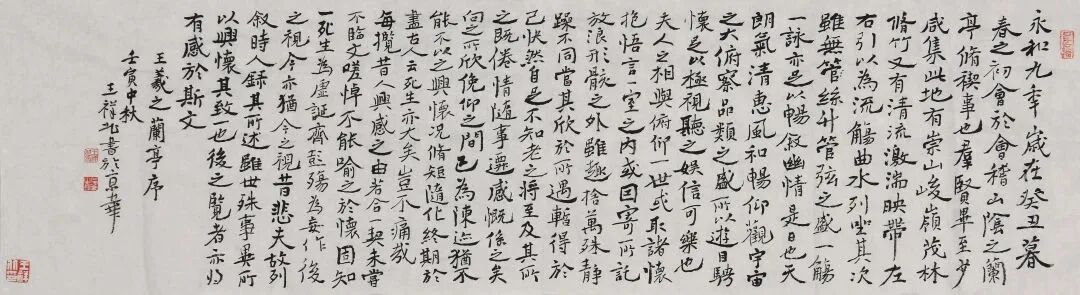 永和九年歲在癸丑暮
春之初會於會稽山陰之蘭
亭脩禊事也羣賢畢至少
咸集此地有崇山峻嶺茂林
脩竹又有清流激湍映帶左
右引以為流觴曲水列坐其次
雖無管絲竹管弦之盛一觴
一詠亦足以暢敘幽情是日也天
朗氣清惠風和暢仰觀宇宙
之大俯察品類之盛所以遊目騁
懷足以極視聽之娛信可樂也
夫人之相與俯仰一世或取諸懷
抱悟言一室之內或因寄所託
放浪形骸之外雖趣捨萬殊靜
躁不同當其欣於所遇暫得於
己快然自足不知老之將至及其所
之既倦情隨事遷感慨係之矣
向之所欣俛仰之間已為陳迹猶不
能不以之興懷況脩短隨化終期於
盡古人云死生亦大矣豈不痛哉
每攬昔人興感之由若合一契未嘗
不臨文嗟悼不能喻之於懷固知
一死生為虛誕齊彭殤為妄作後
之視今亦猶今之視昔悲夫故列
敘時人錄其所述雖世殊事異所
以興懷其致一也後之覽者亦將
有感於斯文
王羲之蘭亭序
壬寅中秋
王祥書於京華